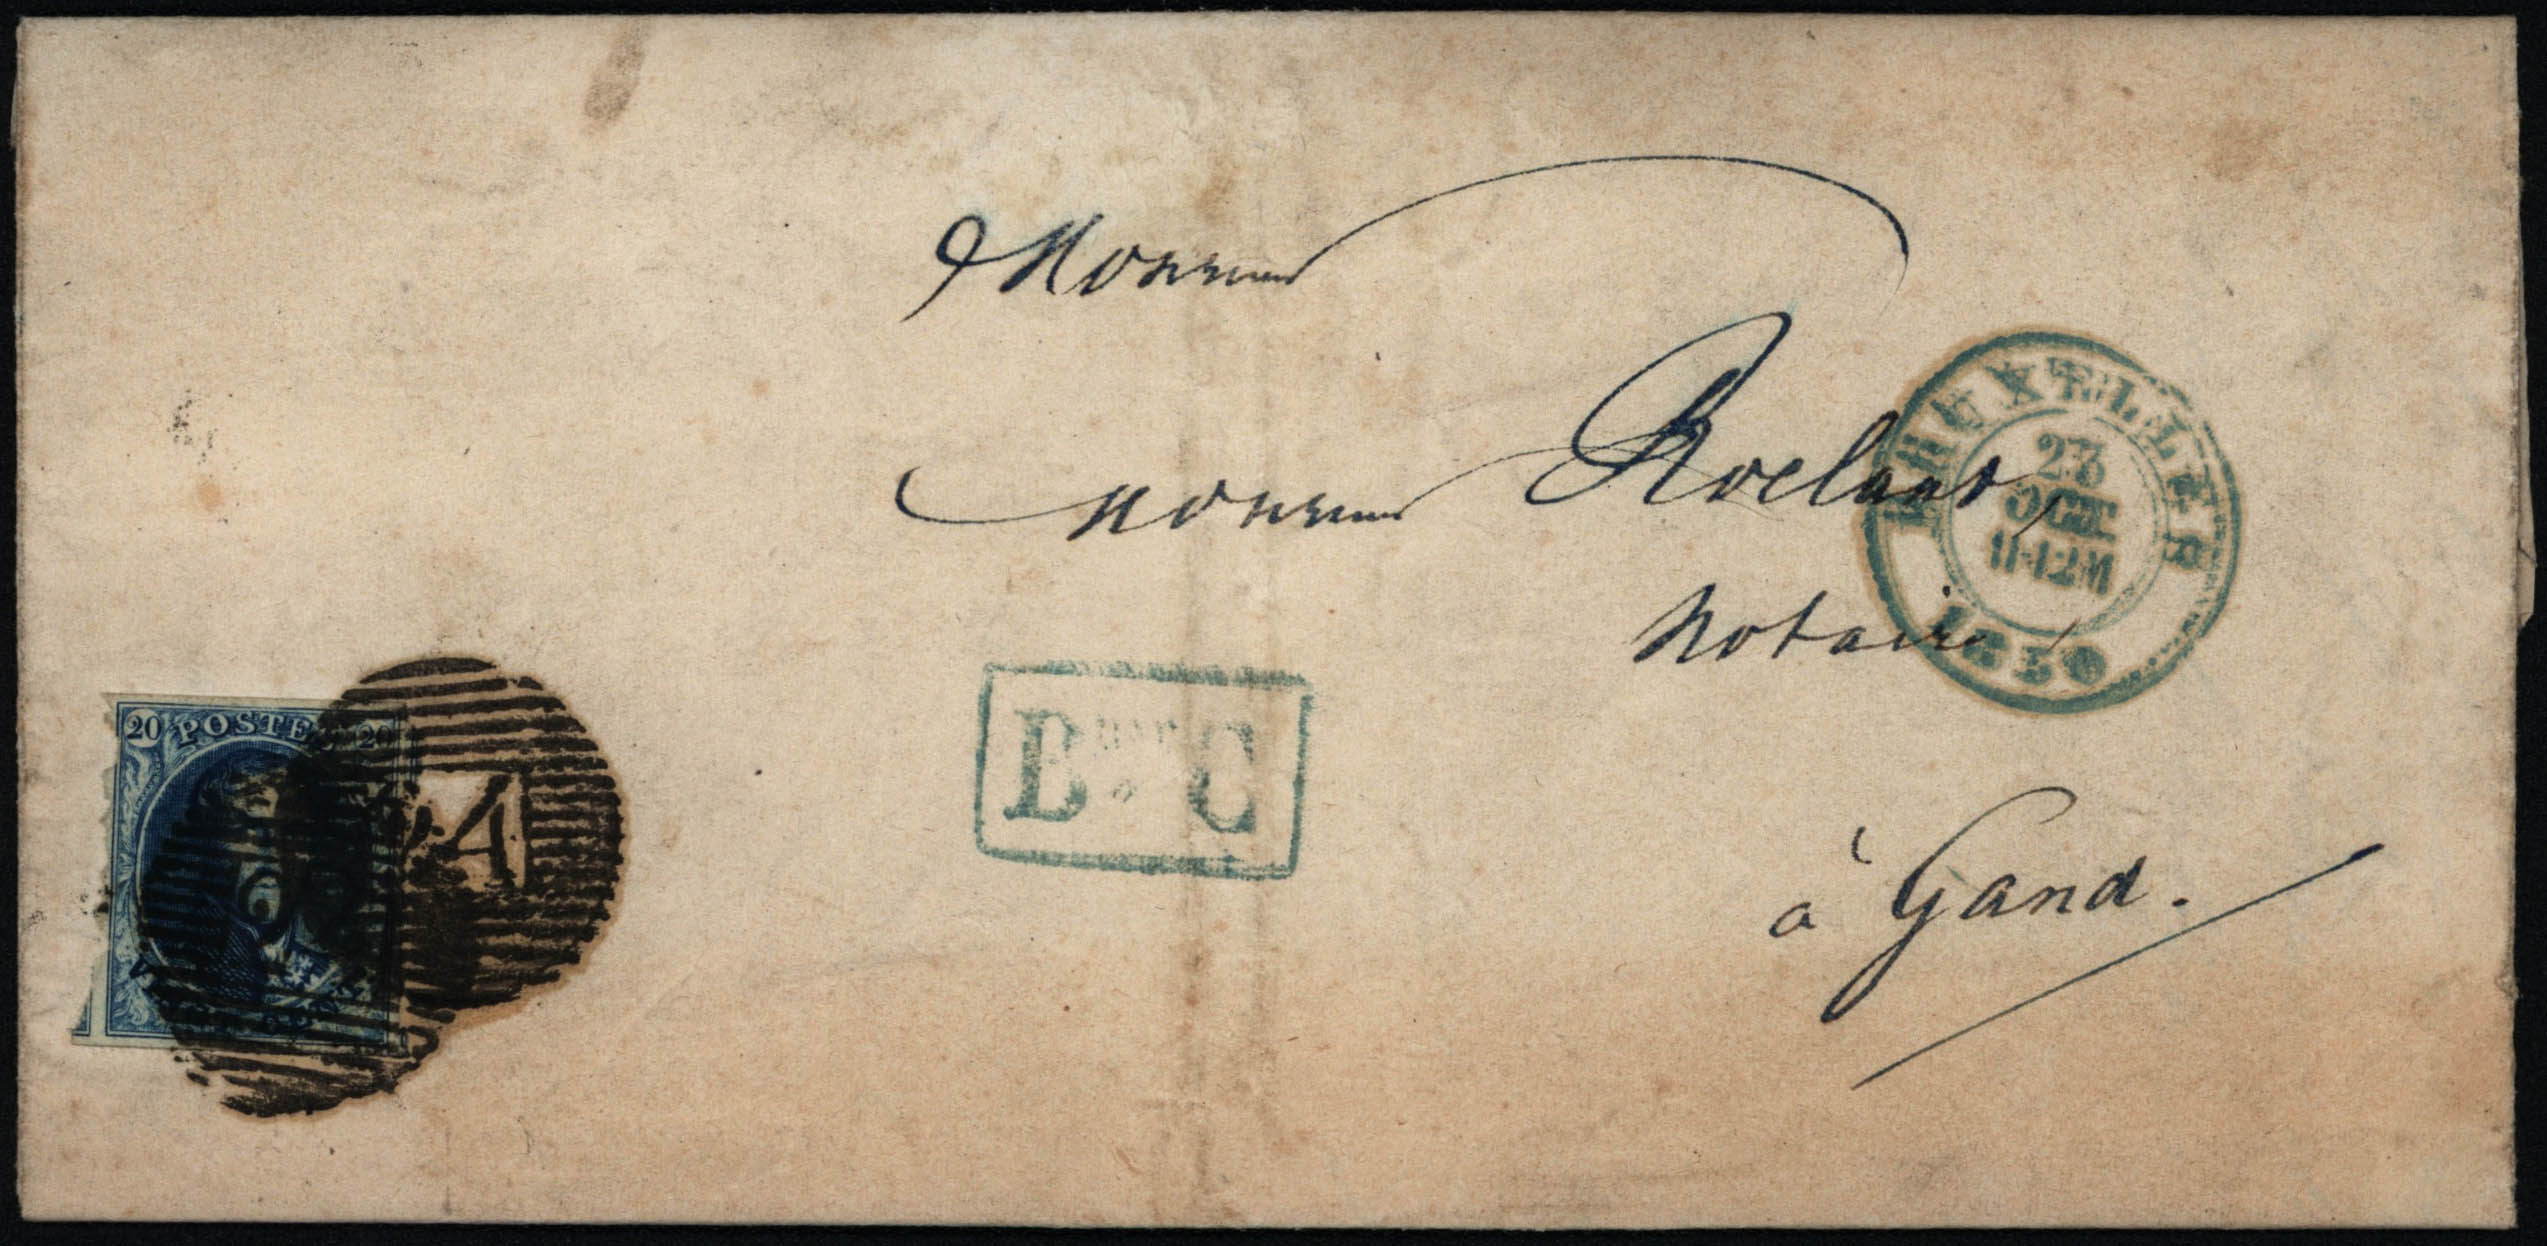 Monsieur
Monsieur Roelants,
Notaire
à Gand.
BRUXELLES
23
OCT.
11-12M
1850
Bur C
20 POSTES 20
24
VINGT CENTS